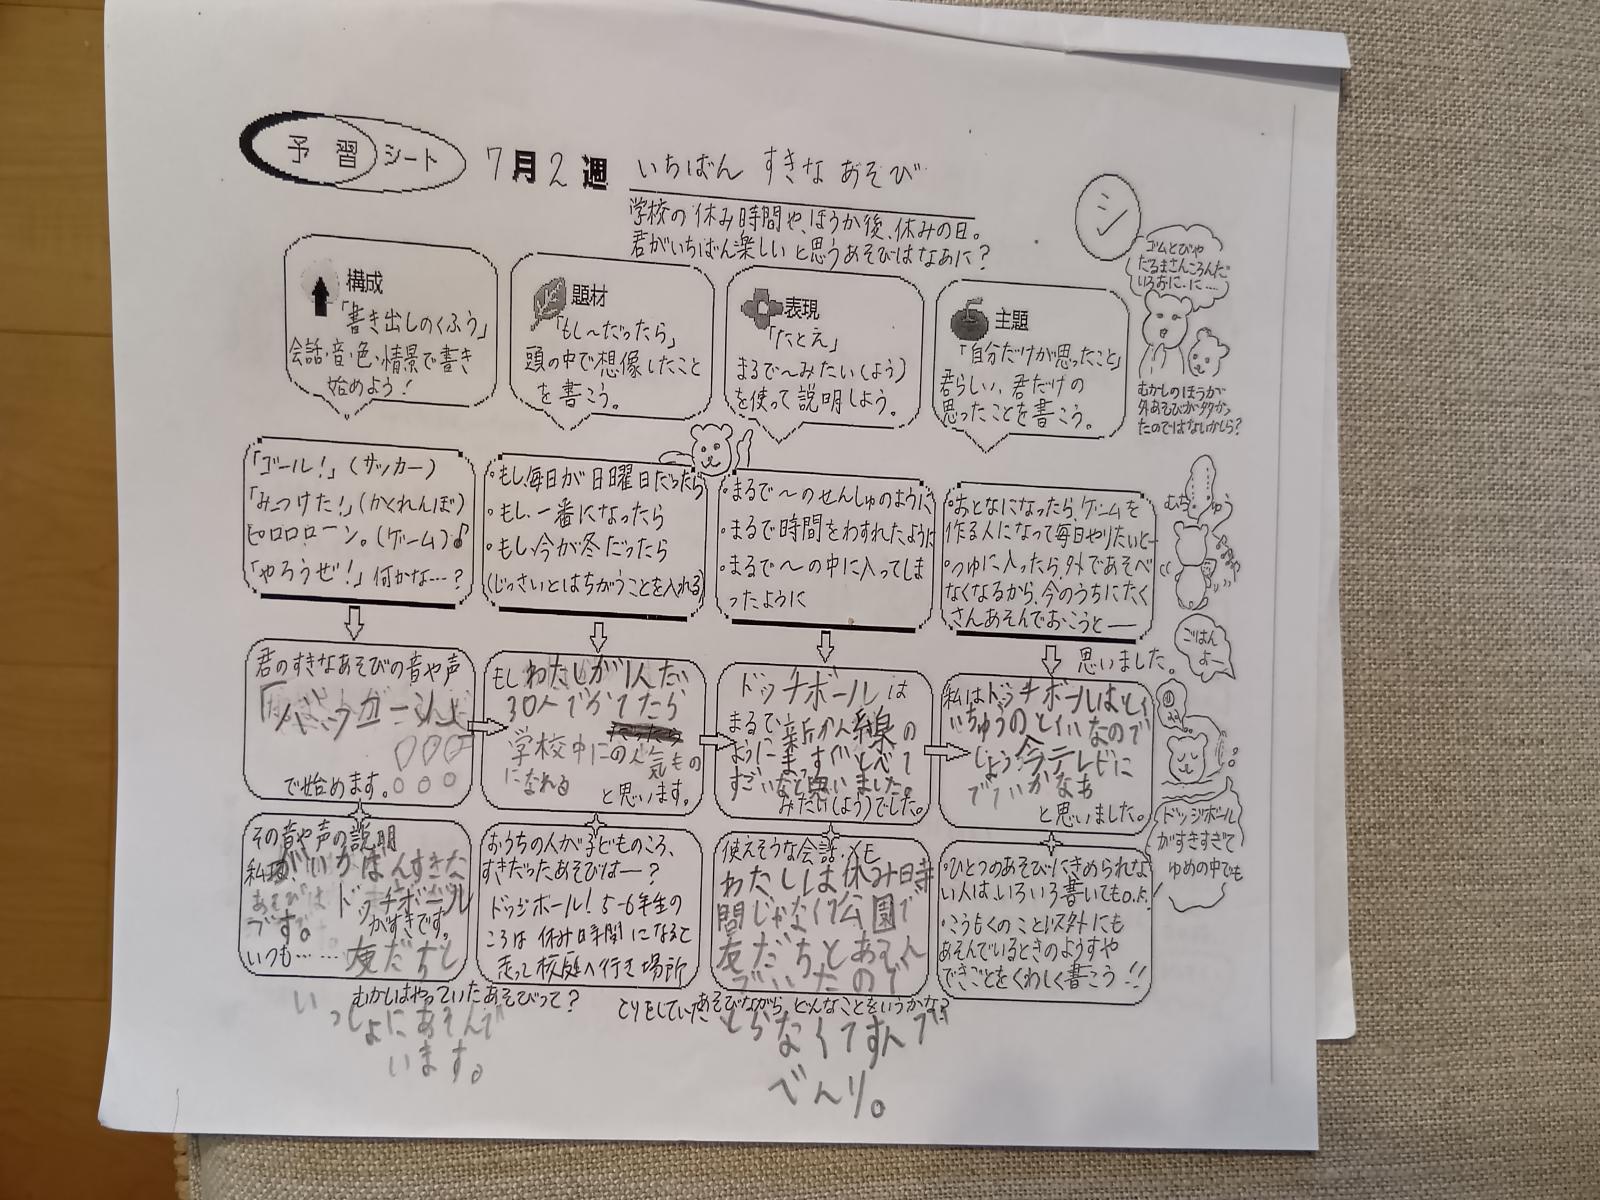 予習シート
7月2週 いちばん すきな あそび
学校の休み時間や、ほうか後、休みの日。
君がいちばん楽しいと思うあそびはなあに?
シ
ゴムとびや
だるまさんころんだ
いろおに・に……
むかしのほうが
外あそびが多かっ
たのではないかしら?
構成
「書き出しのくふう」
会話・音・色・情景で書き
始めよう!
題材
「もし〜だったら」
頭の中で想像したこと
を書こう。
表現
「たとえ」
まるで〜みたい(よう)
を使って説明しよう。
主題
「自分だけが思ったこと」
君らしい、君だけの
思ったことを書こう。
「ゴール!」(サッカー)
「みつけた!」(かくれんぼ)
ピロロロローン。(ゲーム)♪
「やろうぜ!」何かな…?
・もし、毎日が日曜日だったら
・もし、一番になったら
・もし、今が冬だったら
(じっさいとはちがうことを入れる)
・まるで〜のせんしゅのように
・まるで時間をわすれたように
・まるで〜の中に入ってしま
ったように
・おとなになったら、ゲームを
作る人になって毎日やりたいと―
・つゆに入ったら、外であそべ
なくなるから、今のうちにたく
さんあそんでおこうと――
思いました。
ごはん
よー
君のすきなあそびの音や声
で始めます。
もしわたしが1人だい
30人でかてたら
学校中にの人気もの
になれる
と思います。
ドッチボールは
まるで、新かん線の
ように
すごいなと思いました。
みたい(よう)でした。
私はドッチボールはとい
なので
しょう今テレビに
でていかなあ
と思いました。
ドッジボール
がすきすぎて
ゆめの中でも
その音や声の説明
ドッチボール
がすきです。
いつも……友だちと
いっしょにあそんで
います。
おうちの人が子どものころ、
すきだったあそびは―?
ドッジボール! 5-6年生の
ころは 休み時間になると
走って校庭へ行き場所
とりをしていた
むかしはやっていたあそびって?
使えそうな会話・メモ
わたしは休み時
間じゃなくて公園で
友だちとあそん
でいたので
とらなくてすんで
べんり。
あそびながら、どんなことをいうかな?
・ひとつのあそびにきめられな
い人は、いろいろ書いてもO.K.
・こうもくのこと以外にも
あそんでいるときのようすや
できごとをくわしく書こう!!